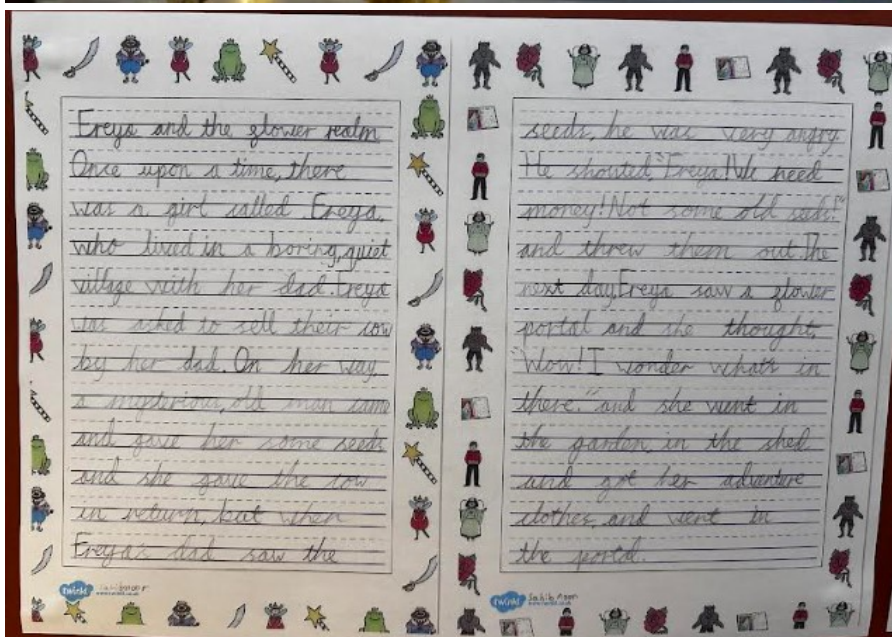 Freya and the flower realm
Once upon a time, there
was a girl called Freya,
who lived in a boring, quiet
village with her dad. Freya
was asked to sell their cow
by her dad. On her way,
a mysterious, old man came
and gave her some seeds
and she gave the cow
in return, but when
Freya's dad saw the
twinkl
www.twinkl.co.uk
seeds, he was very angry.
He shouted, "Freya! We need
money! Not some old seeds!"
and threw them out. The
next day, Freya saw a flower
portal and she thought,
"Wow! I wonder what's in
there." and she went in
the garden, in the shed
and got her adventure
clothes, and went in
the portal.
twinkl
www.twinkl.co.uk